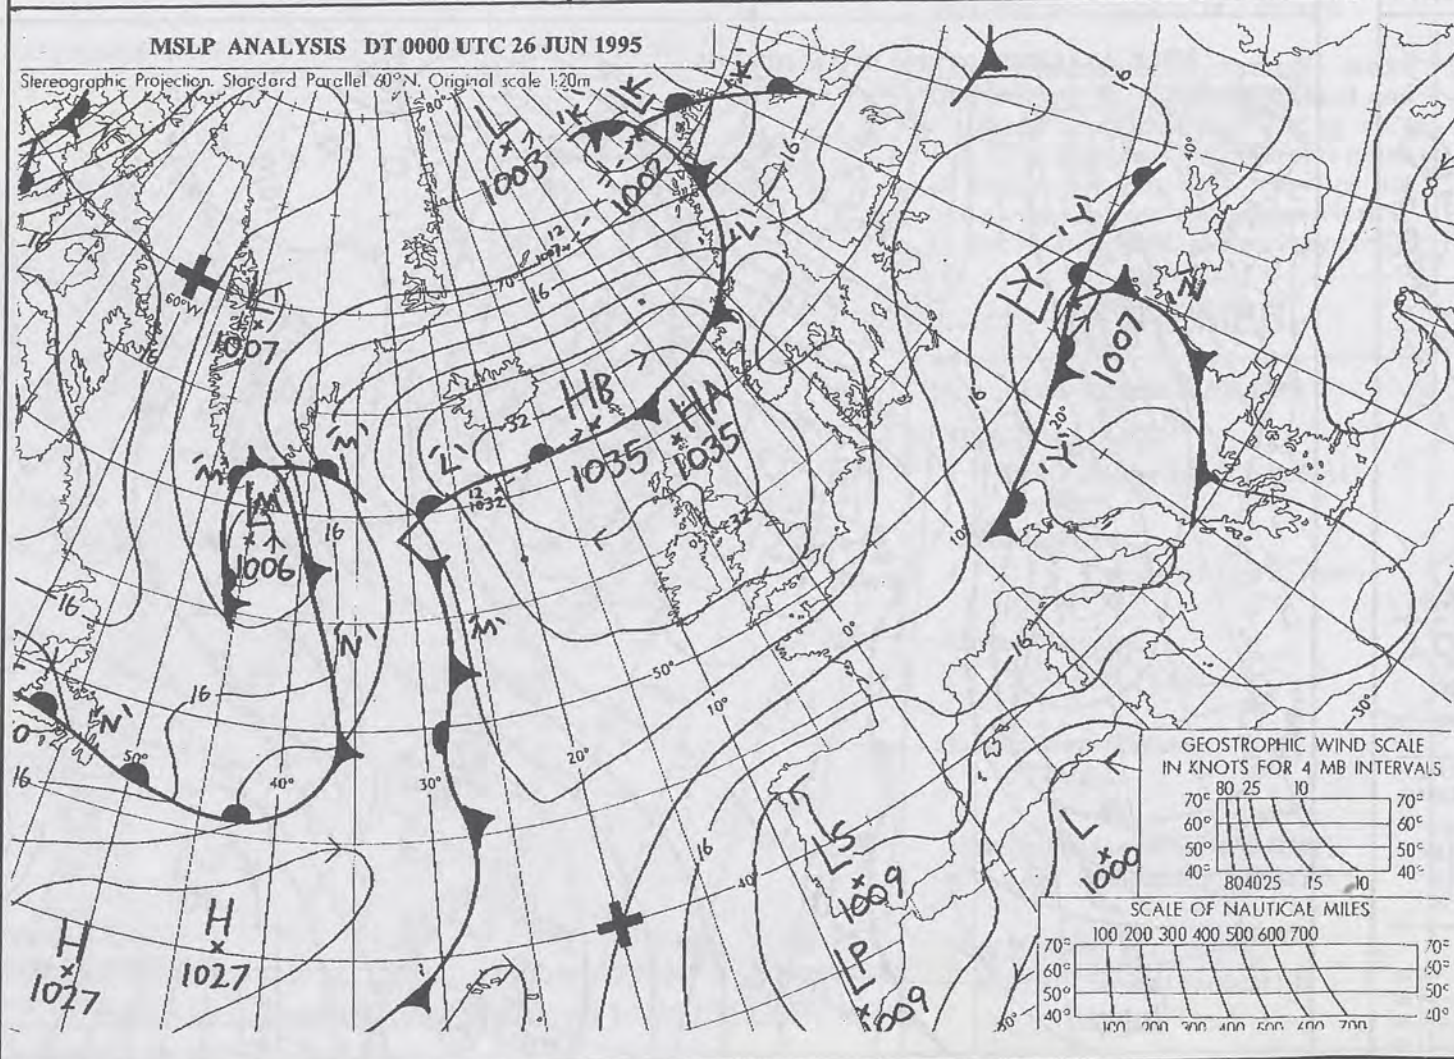 MSLP ANALYSIS DT 0000 UTC 26 JUN 1995
Stereographic Projection. Standard Parallel 60°N. Original scale 1:20m
80°
L
1003
LK
'K'
'K'
1002
16
16
40°
8
16
12
1007
70°
16
'L'
LY
'Y'
'N'
1007
60°W
L
1007
HB
1035
HA
1035
32
'L'
12
1032
32
'M'
'M'
LM
1006
16
'Y'
20°
10°
16
'N'
'M'
16
0°
50°
10°
20°
30°
40°
50°
'N'
16
16
16
30°
16
40°
LS
1009
LP
1009
L
1000
H
1027
H
1027
GEOSTROPHIC WIND SCALE
IN KNOTS FOR 4 MB INTERVALS
80 25 10
70° 70°
60° 60°
50° 50°
40° 40°
80 40 25 15 10
SCALE OF NAUTICAL MILES
100 200 300 400 500 600 700
70° 70°
60° 60°
50° 50°
40° 40°
100 200 300 400 500 600 700